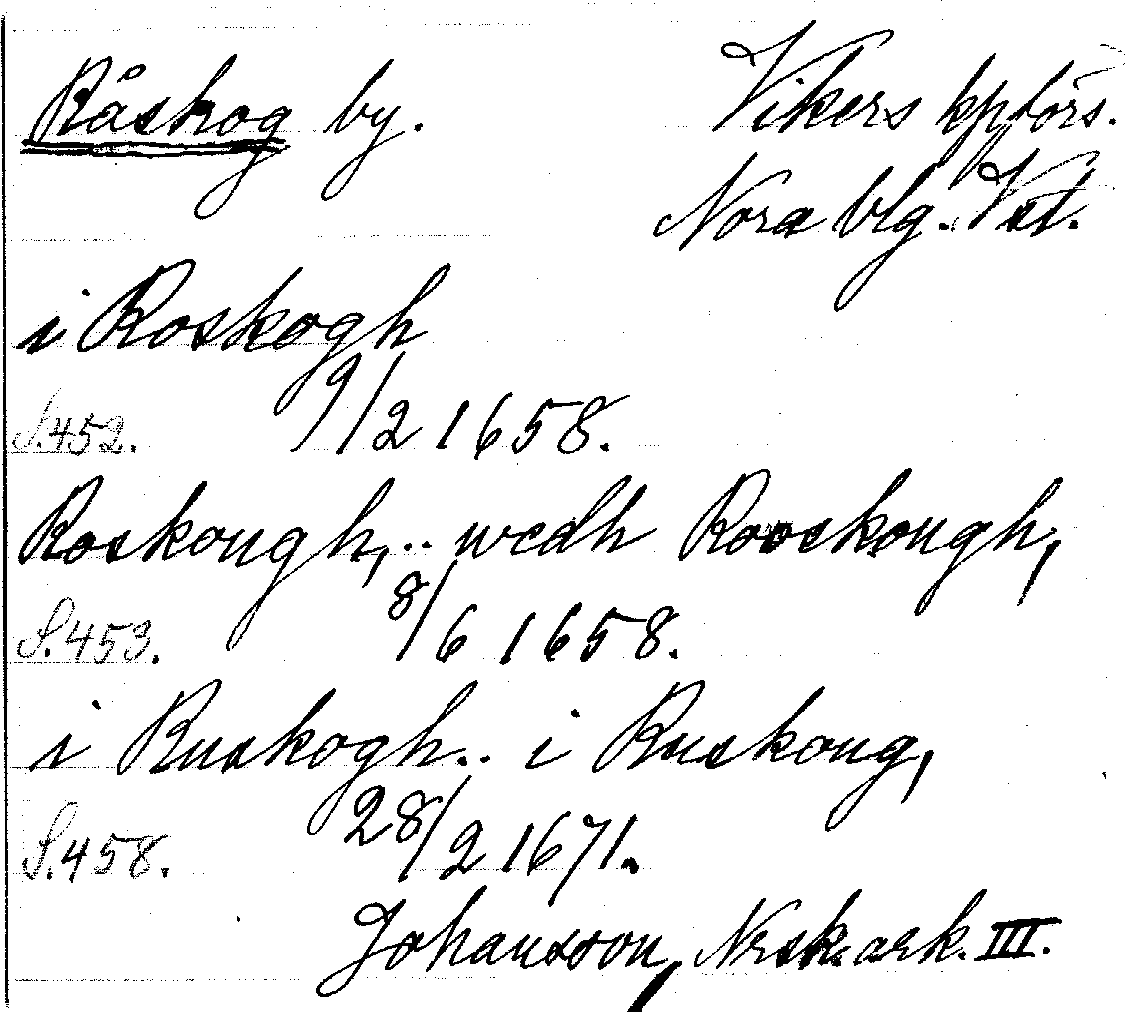 Råskog by. Vikers kpförs.
Nora blg. Vstl.
i Roskogh
S.452. 9/2 1658.
Roskough, .. wedh Rooskough,
S.453. 8/6 1658.
i Ruskogh .. i Ruskoug,
S.458. 28/2 1671.
Johansson, Norsk. ark. III.